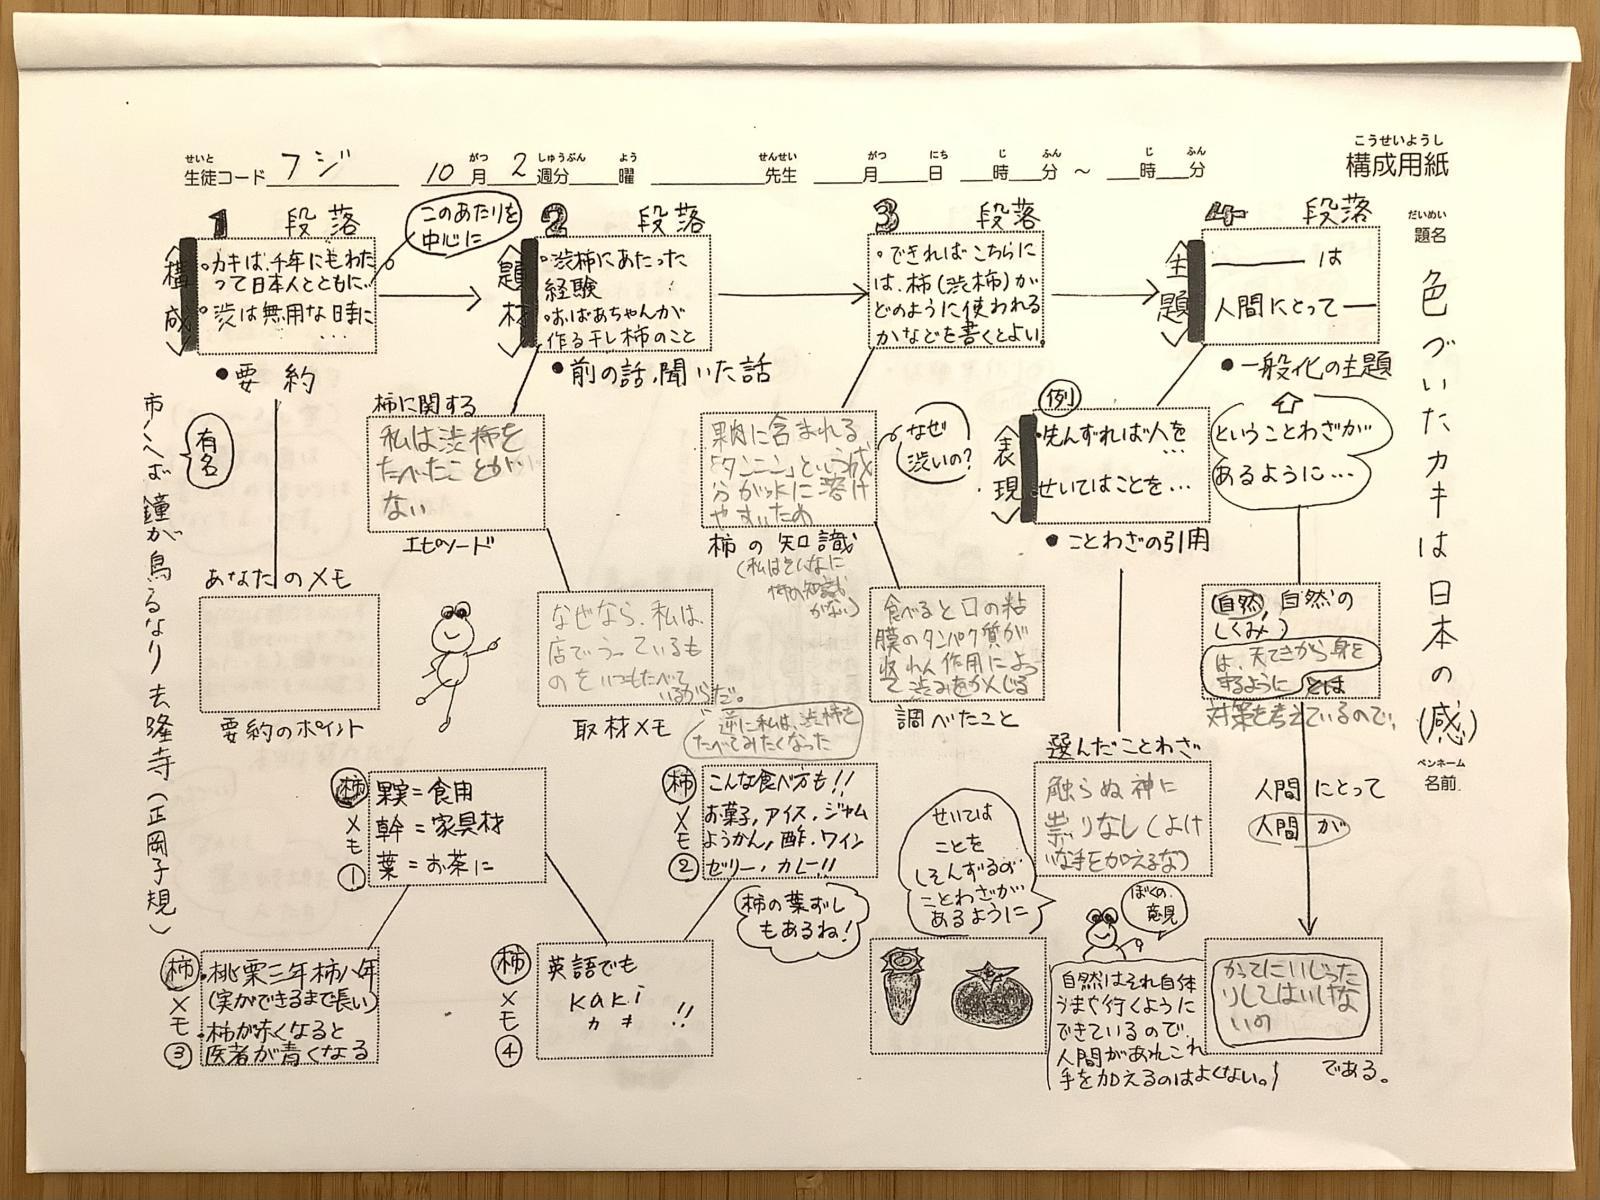 こうせいようし
構成用紙
せいと がつ しゅうぶん よう せんせい がつ にち じ ふん じ ふん
生徒コード フジ 10月 2週分 曜 先生 月 日 時 分 ～ 時 分
だいめい
題名
色づいたカキは日本の(感)
ペンネーム
名前
1 段落
〈構成〉
このあたりを
中心に
・カキは、千年にもわた
って日本人とともに…
・渋は無用な時に
・・・・
●要約
有名
あなたのメモ
要約のポイント
2 段落
〈題材〉
・渋柿にあたった
経験
・おばあちゃんが
作る干し柿のこと
●前の話、聞いた話
柿に関する
私は渋柿を
たべたことが
ない
エピソード
なぜなら、私は、
店でうっているも
のをいつもたべて
いるからだ。
取材メモ
逆に私は、渋柿を
たべてみたくなった
3 段落
・できればこちらに
は、柿(渋柿)が
どのように使われる
かなどを書くとよい。
果肉に含まれる
「タンニン」という成
分が水に溶け
やすいため
なぜ
渋いの?
柿の知識
(私はそんなに
柿の知識
がない)
食べると口の粘
膜のタンパク質が
収れん作用によっ
て渋みをかんじる
調べたこと
4 段落
〈主題〉
――― は
人間にとって―
●一般化の主題
ということわざが
あるように…
例
〈表現〉
・先んずれば人を
…
せいてはことを…
●ことわざの引用
選んだことわざ
触らぬ神に
祟りなし(よけ
いな手を加えるな)
せいては
ことを
しそんずるの
ことわざが
あるように
自然、自然の
しくみ、)
は、天てきから身を
守るように とは
対策を考えているので、
人間にとって
人間が
かってにいじった
りしてはいけな
いの
である。
ぼくの
意見
自然はそれ自体
うまや行くように
できているので、
人間があれこれ
手を加えるのはよくない。
柿メモ①
果実=食用
幹=家具材
葉=お茶に
柿メモ②
こんな食べ方も!!
お菓子,アイス・ジャム
ようかん,酢・ワイン
ゼリー・カレー!!
柿の葉ずし
もあるね!
柿メモ③
・桃栗三年柿八年
(実ができるまで長い)
・柿が赤くなると
医者が青くなる
柿メモ④
英語でも
kaki
カキ !!
柿くへば鐘が鳴るなり法隆寺(正岡子規)